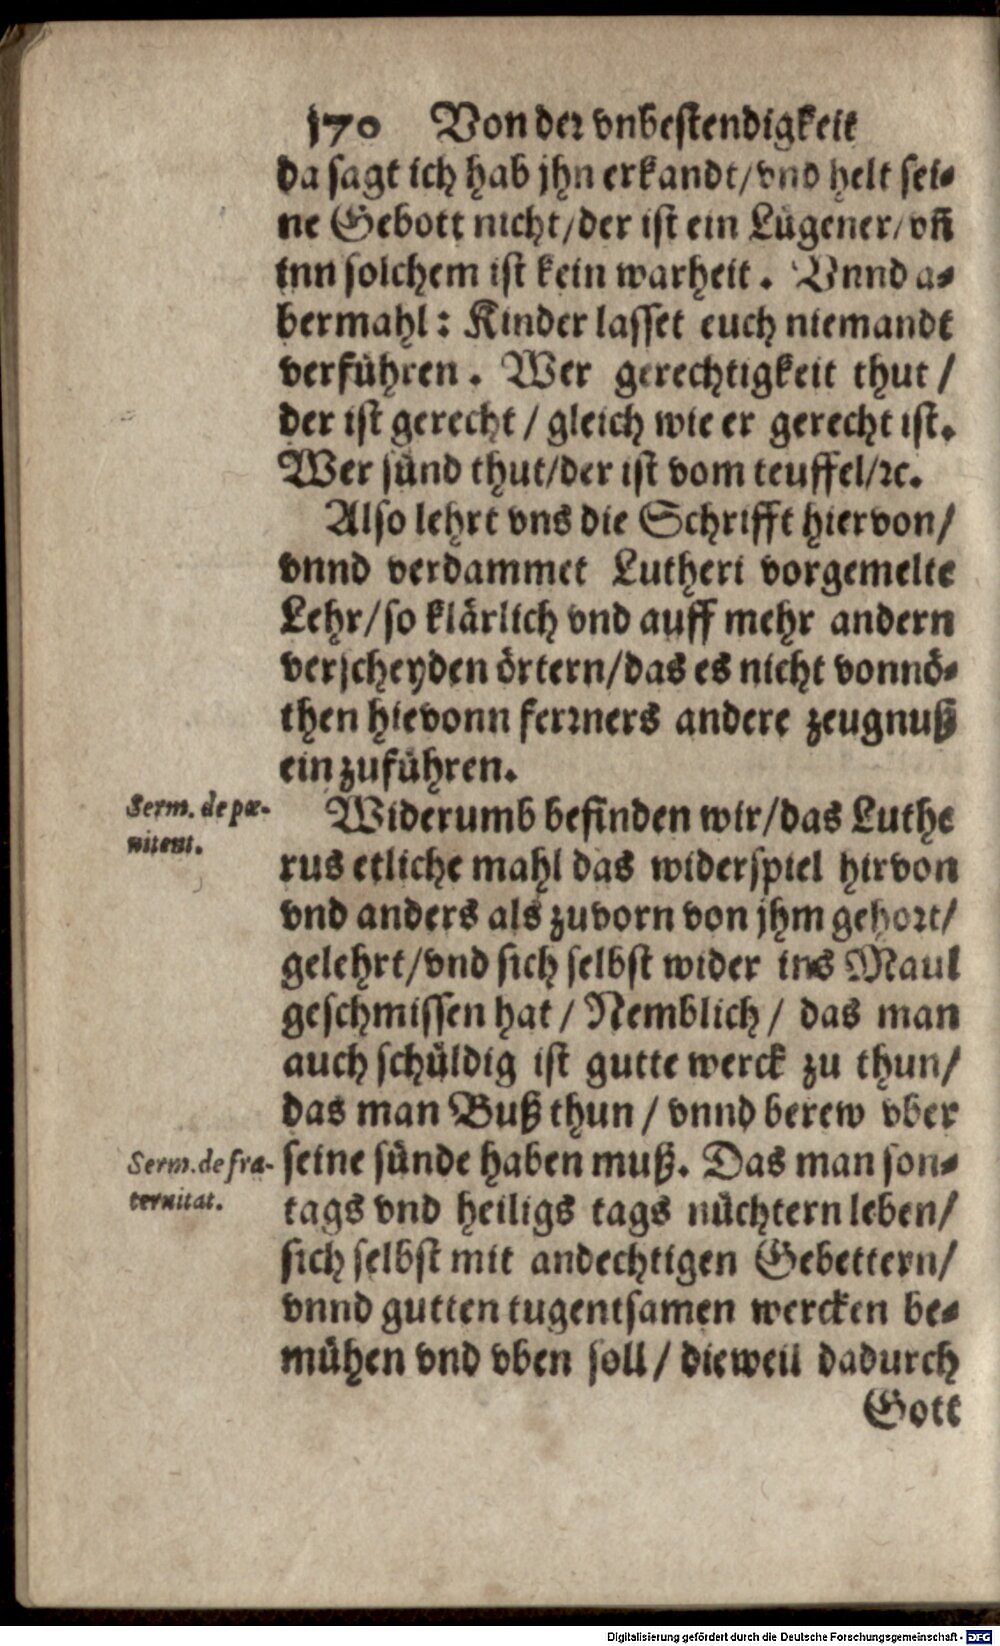 170 Von der vnbestendigkeit
da sagt ich hab jhn erkandt/vnd helt sei-
ne Gebott nicht/der ist ein Lügener/vñ
inn solchem ist kein warheit. Vnnd a-
bermahl: Kinder lasset euch niemandt
verführen. Wer gerechtigkeit thut/
der ist gerecht/gleich wie er gerecht ist.
Wer sünd thut/der ist vom teuffel/ꝛc.
Also lehrt vns die Schrifft hiervon/
vnnd verdammet Lutheri vorgemelte
Lehr/so klärlich vnd auff mehr andern
verscheyden örtern/das es nicht vonnö-
then hievonn ferrners andere zeugnuß
einzuführen.
Serm. de pœ-
nitent.
Widerumb befinden wir/das Luthe
rus etliche mahl das widerspiel hirvon
vnd anders als zuvorn von jhm gehort/
gelehrt/vnd sich selbst wider ins Maul
geschmissen hat/Nemblich/das man
auch schüldig ist gutte werck zu thun/
das man Buß thun/vnnd berew vber
Serm. de fra-
ternitat.
seine sünde haben muß. Das man son-
tags vnd heiligs tags nüchtern leben/
sich selbst mit andechtigen Gebettern/
vnnd gutten tugentsamen wercken be-
mühen vnd vben soll/dieweil dadurch
Gott
Digitalisierung gefördert durch die Deutsche Forschungsgemeinschaft - DFG